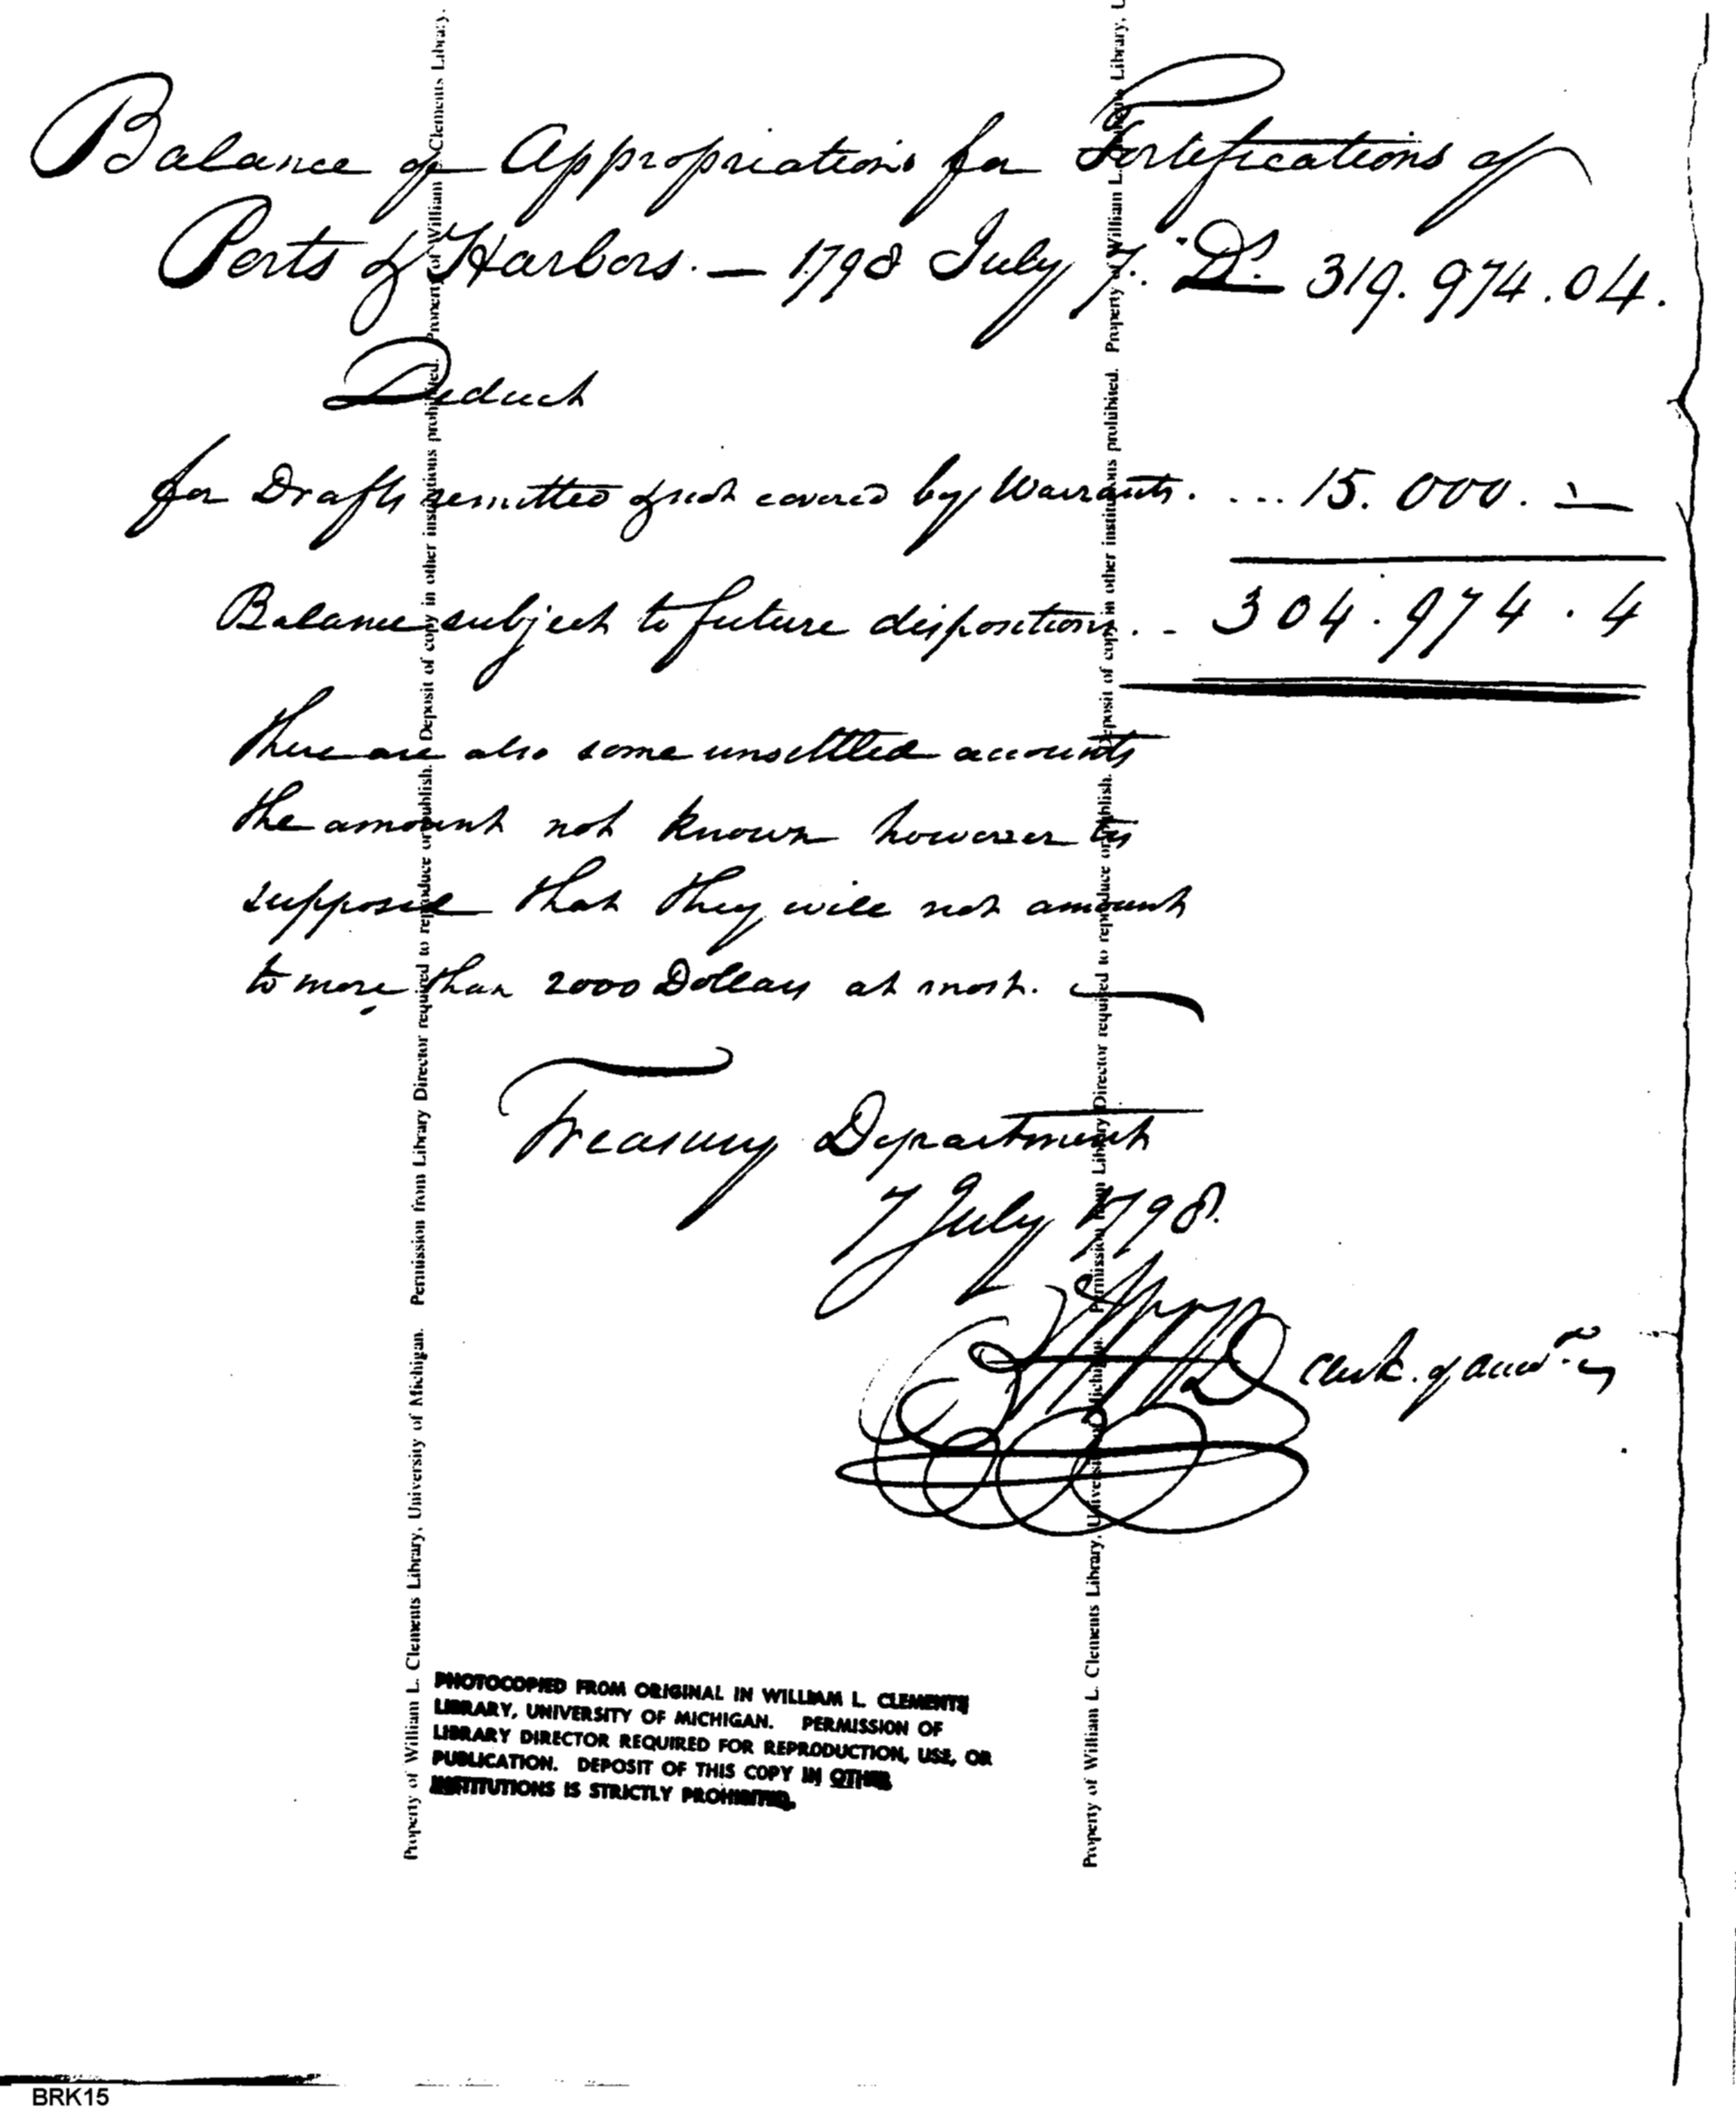 Balance of Appropriations for Fortifications of
Ports & Harbors. — 1798 July 7. Ds. 319.974.04.
Deduct
for Drafts remitted & not covered by Warrants. ... 15.000. —
Balance subject to future dispositions .. 304.974.4
There are also some unsettled accounts
the amount not known however tis
supposed that they will not amount
to more than 2000 Dollars at most. —
Treasury Department
7 July 1798.
Clerk. of Accots.
Property of William L. Clements Library, University of Michigan. Permission from Library Director required to reproduce or publish. Deposit of copy in other institutions prohibited. Property of William L. Clements Library.
Property of William L. Clements Library, University of Michigan. Permission from Library Director required to reproduce or publish. Deposit of copy in other institutions prohibited. Property of William L. Clements Library, U
PHOTOCOPIED FROM ORIGINAL IN WILLIAM L. CLEMENTS
LIBRARY, UNIVERSITY OF MICHIGAN. PERMISSION OF
LIBRARY DIRECTOR REQUIRED FOR REPRODUCTION, USE, OR
PUBLICATION. DEPOSIT OF THIS COPY IN OTHER
INSTITUTIONS IS STRICTLY PROHIBITED.
BRK15